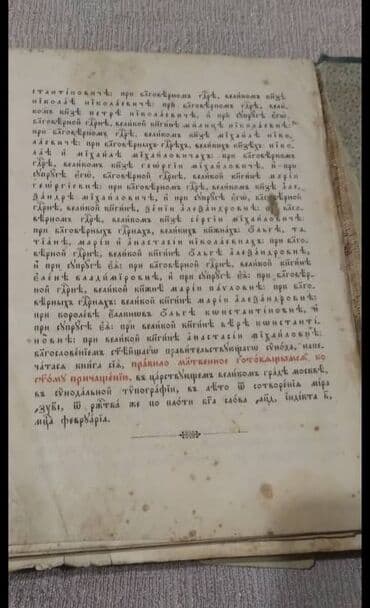 стантіновичѣ: при бл҃говѣрномъ гдⷭ҇рѣ, великомъ кнѧ҃зѣ
нїколаѣ нїколаевичѣ: при бл҃говѣрномъ гдⷭ҇рѣ, вели-
комъ кнѧ҃зѣ петрѣ нїколаевичѣ, и҆ при сꙋпрꙋгѣ є҆гѡ̀,
бл҃говѣрной гдⷭ҇рнѣ, великой кнѧги́нѣ милицѣ нїколаевнѣ:
при бл҃говѣрномъ гдⷭ҇рѣ, великомъ кнѧ҃зѣ мїхаилѣ нїко-
лаевичѣ: при бл҃говѣрныхъ гдⷭ҇рѣхъ, великихъ кнѧ҃зѣхъ: нїко-
лаѣ и҆ мїхаилѣ мїхаиловичахъ: при бл҃говѣрномъ
гдⷭ҇рѣ, великомъ кнѧ҃зѣ геѡргїи мїхаиловичѣ, и҆ при
сꙋпрꙋгѣ є҆гѡ̀, бл҃говѣрной гдⷭ҇рнѣ, великой кнѧги́нѣ марїи
геѡргїевнѣ: при бл҃говѣрномъ гдⷭ҇рѣ, великомъ кнѧ҃зѣ а҆ле-
ѯандрѣ мїхаиловичѣ, и҆ при сꙋпрꙋгѣ є҆гѡ̀, бл҃говѣрной
гдⷭ҇рнѣ, великой кнѧги́нѣ, ѯенїи а҆леѯандровнѣ: при бл҃го-
вѣрномъ гдⷭ҇рѣ, великомъ кнѧ҃зѣ сергїи мїхаиловичѣ:
при бл҃говѣрныхъ гдⷭ҇рнахъ, великихъ кнѧжнахъ: ѻ҆льгѣ, та-
тїанѣ, марїи и҆ а҆настасїи нїколаевнахъ: при бл҃го-
вѣрной гдⷭ҇рнѣ, великой кнѧги́нѣ ѻ҆льгѣ а҆леѯандровнѣ,
и҆ при сꙋпрꙋгѣ є҆ѧ̀: при бл҃говѣрной гдⷭ҇рнѣ, великой кнѧги́нѣ
є҆ленѣ владимїровнѣ, и҆ при сꙋпрꙋгѣ є҆ѧ̀: при бл҃говѣр-
ной гдⷭ҇рнѣ, великой кнѧжнѣ марїи паѵловнѣ: при бл҃го-
вѣрныхъ гдⷭ҇рнахъ: великой кнѧги́нѣ марїи а҆леѯандровнѣ:
при королевѣ є҆ллинѡвъ ѻ҆льгѣ кѡнстантїновнѣ, и҆
при сꙋпрꙋгѣ є҆ѧ̀: при великой кнѧги́нѣ вѣрѣ кѡнстанті-
новнѣ: при великой кнѧги́нѣ а҆настасїи мїхаиловнѣ,
бл҃гословенїемъ ст҃ѣйшагѡ правительствꙋющагѡ сѷнода, напе-
чатасѧ книга сїѧ̀, правило мл҃твенное готовѧщымсѧ ко
ст҃омꙋ причащенїю, въ царствꙋющемъ великомъ градѣ москвѣ,
въ сѷнодальной тѷпографїи, въ лѣто ѿ сотворенїѧ мїра
҂зꙋві, ѿ ржⷭ҇тва же по плоти бг҃а слова ҂аци, індікта в҃,
мцⷭ҇а феврꙋарїа.